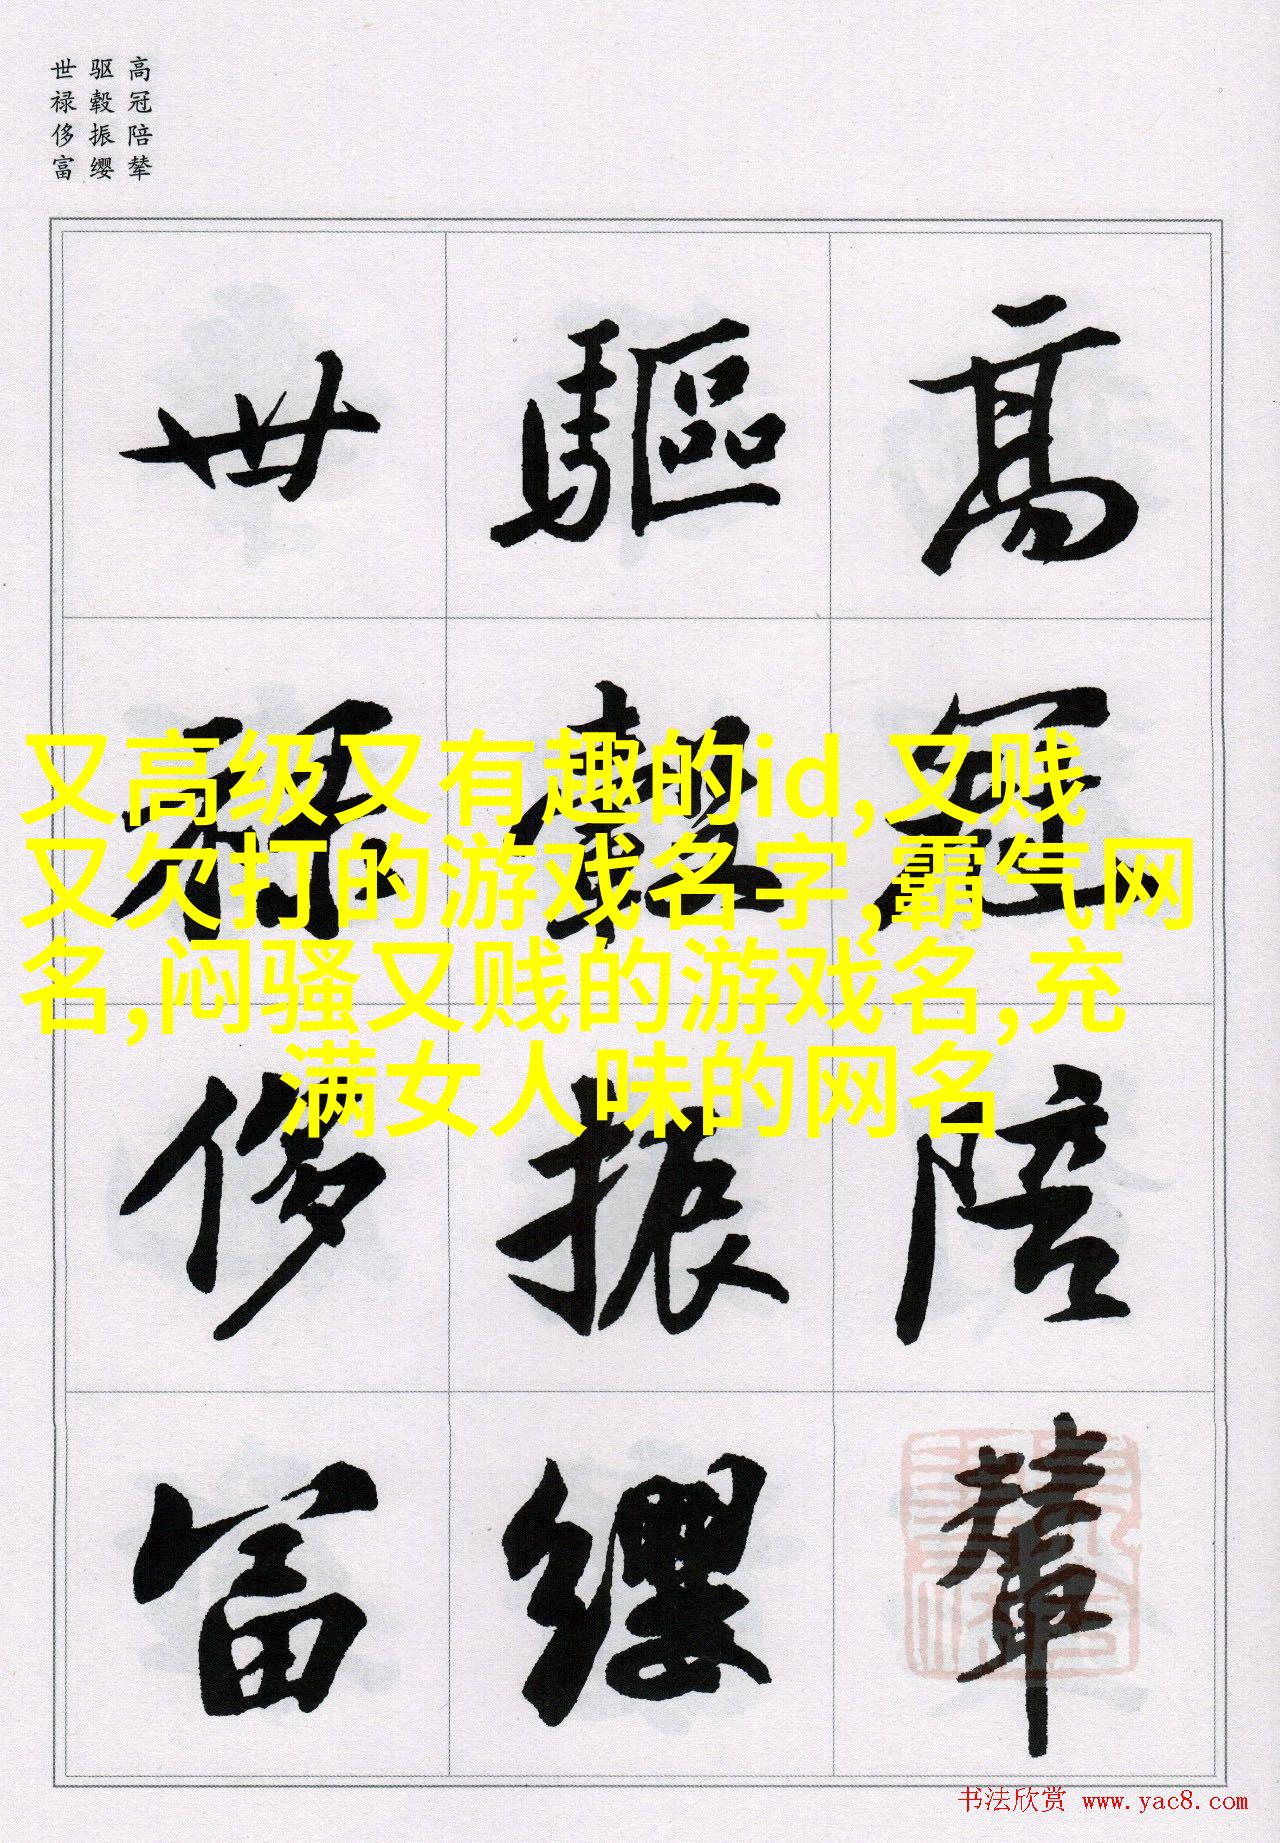 高冠陪辇
驱毂振缨
世禄侈富
高冠陪輦
驅轂振纓
世禄侈富
又高级又有趣的id,又贱
又欠打的游戏名字,霸气网
名,闷骚又贱的游戏名,充
满女人味的网名
书法欣赏 www.yac8.com